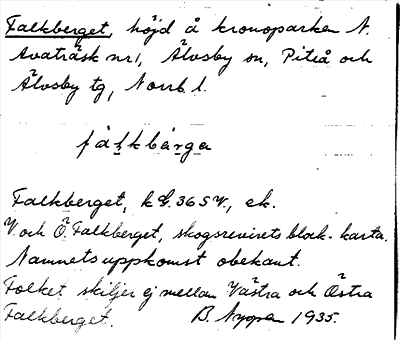 Falkberget, höjd å kronoparken N.
Avaträsk nr 1, Älvsby sn, Piteå och
Älvsby tg, Norrb. l.
fàlkbärga
Falkberget, k 365 V., ek.
V. och Ö. Falkberget, skogsrevirets blå k-karta.
Namnets uppkomst obekant.
Folket skiljer ej mellan Västra och Östra
Falkberget. B. 1935.